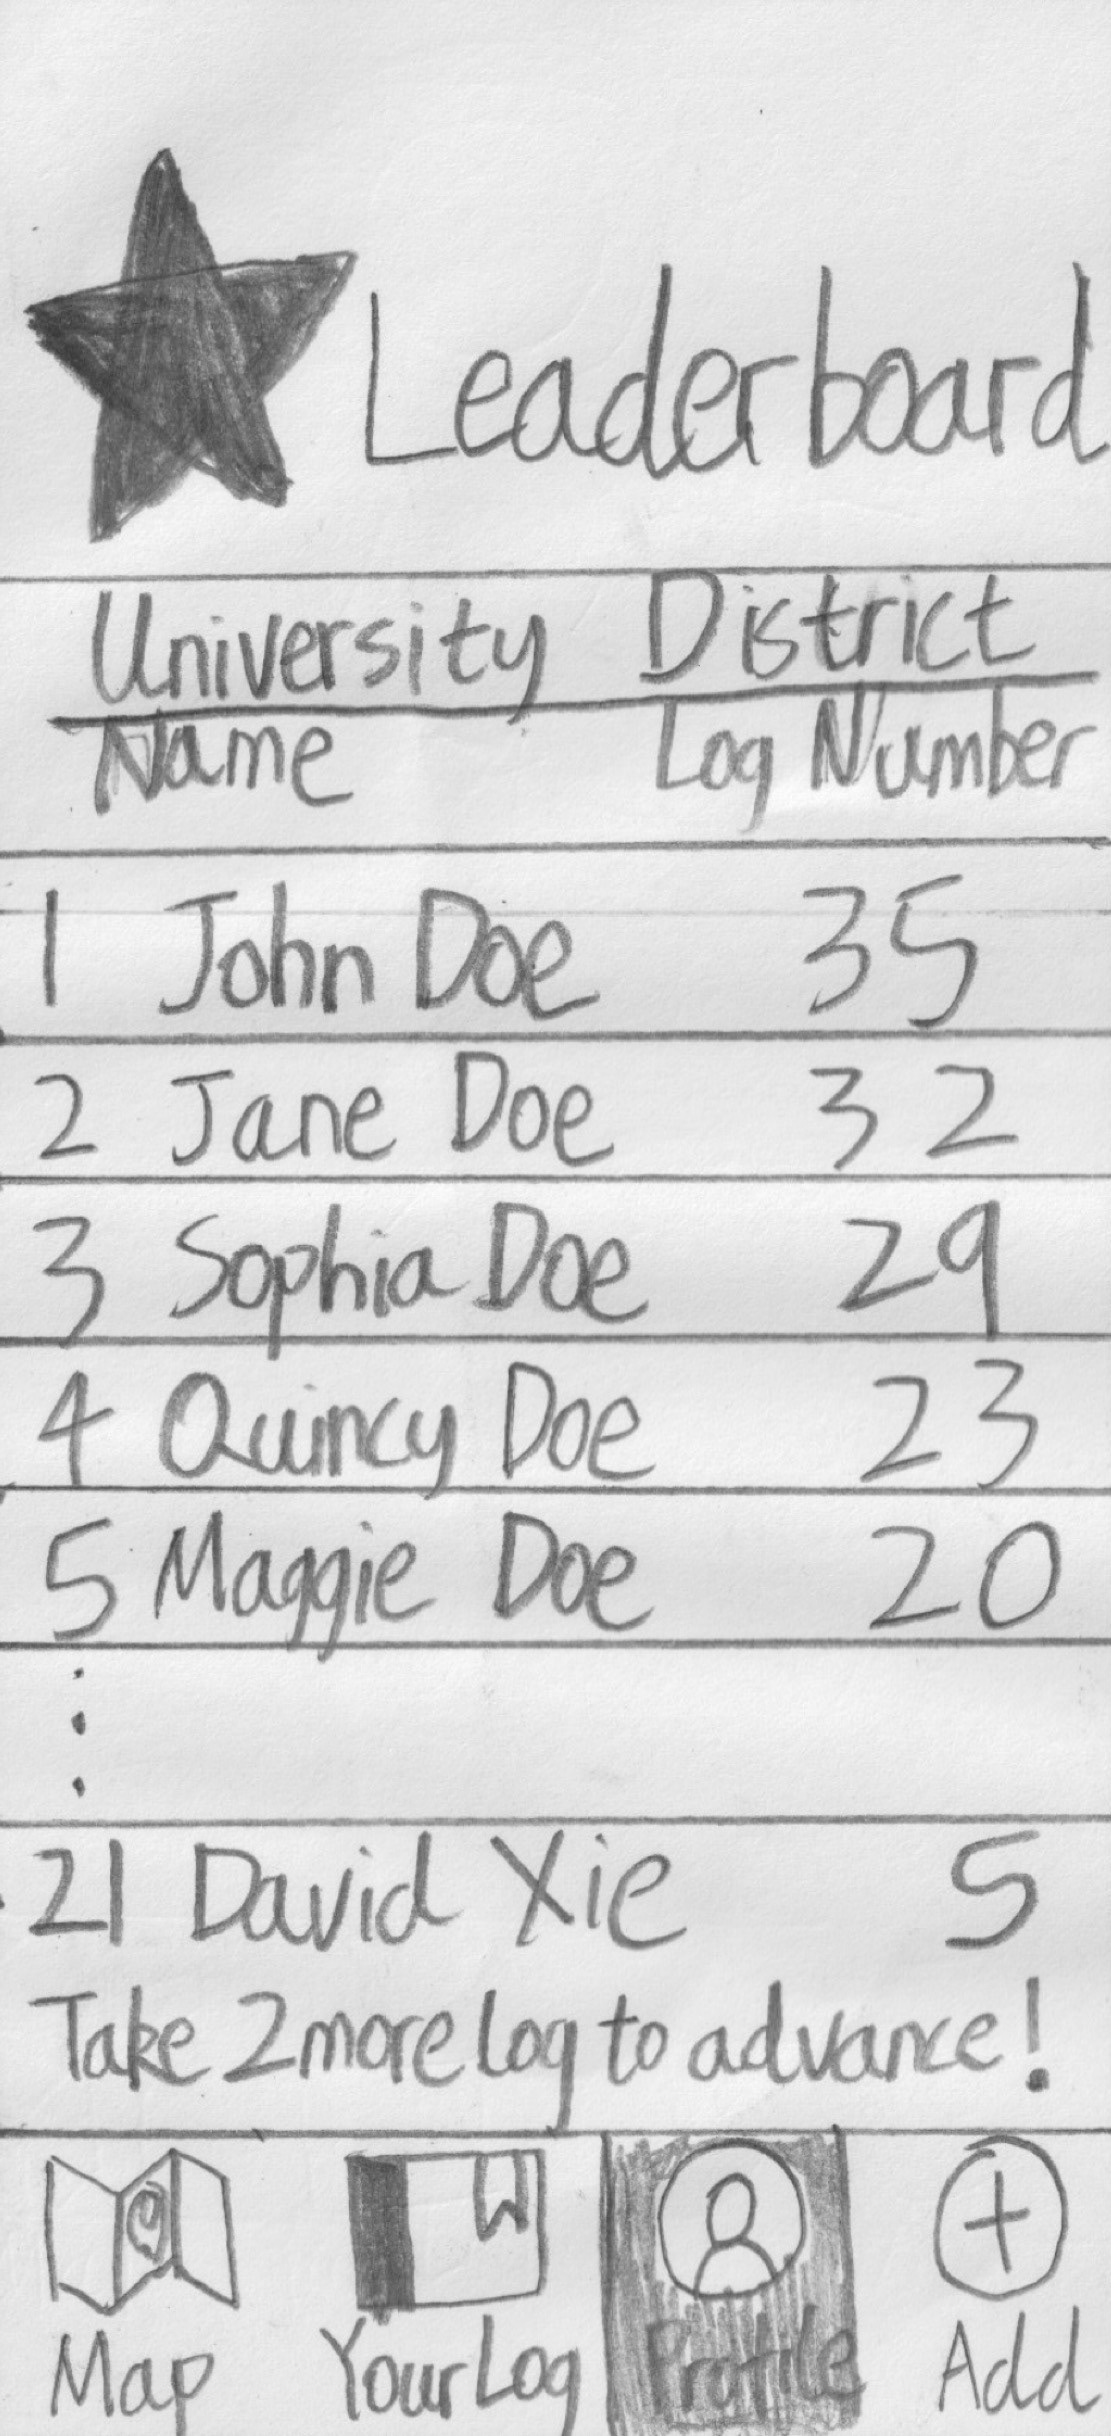 Leaderboard
University District
Name Log Number
1 John Doe 35
2 Jane Doe 32
3 Sophia Doe 29
4 Quincy Doe 23
5 Maggie Doe 20
21 David Xie 5
Take 2 more log to advance!
Map Your Log Profile Add